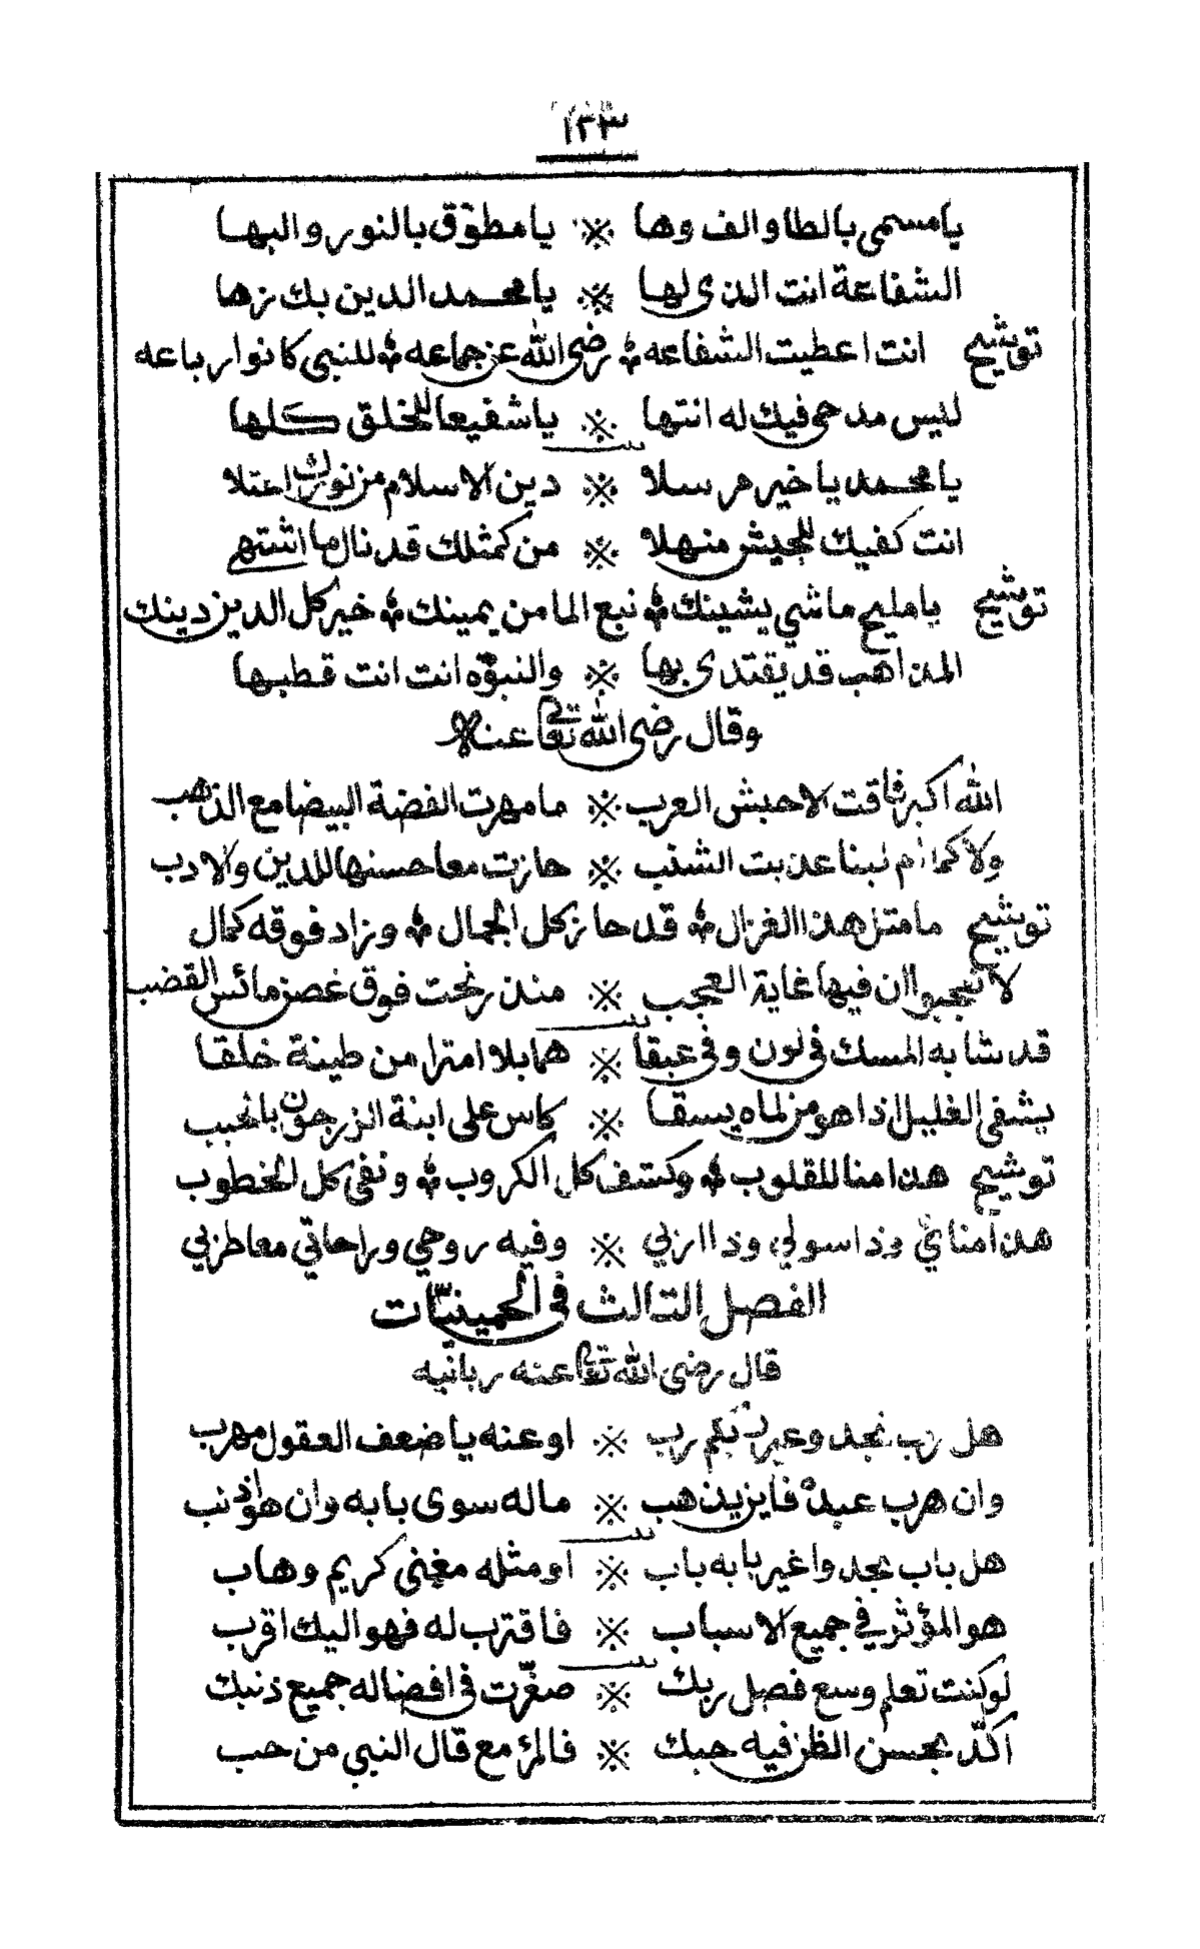 ١٣٣
يا مسمى بالطا والف وها ※ يا مطوّق بالنور والبها
الشفاعة انت الذى لها ※ يا محمد الدين بك زها
توشيح انت اعطيت الشفاعه ؞ رضى الله عن جماعه ؞ للنبى كانوا رباعه
ليس مدحى فيك له انتها ※ يا شفيعا للخلق كلها
يا محمد يا خير مرسلا ※ دين الاسلام من نورك اعتلا
انت كفيك للجيش منهلا ※ من كمثلك قد نال ما اشتهى
توشيح يا مليح ما شي يشينك ؞ نبع الما من يمينك ؞ خير كل الدين دينك
المذاهب قد يقتدى بها ※ والنبوّه انت انت قطبها
وقال رضى الله تعالى عنه
الله اكبر فاقت الاحبش العرب ※ ما مهرت الفضة البيضا مع الذهب
ولا كما ام لبنا عذبت الشنب ※ حازت معا حسنها للدين والادب
توشيح ما مثل هذا الغزال ؞ قد حاز كل الجمال ؞ وزاد فوقه كمال
لا تعجبوا ان فيها غاية العجب ※ منذ رنحت فوق غصن مائس القضب
قد شابه المسك فى لون وفى عبقا ※ هما بلا امترا من طينة خلقا
يشفى الغليل اذا هو من لماه يسقا ※ كاس على ابنة الزرجون بالحبب
توشيح هذا منا للقلوب ؞ وكشف كل الكروب ؞ ونفى كل الخطوب
هذا مناي وذا سولي وذا اربي ※ وفيه روحي وراحاتي معا طربي
الفصل الثالث فى الحمينيّات
قال رضى الله تعالى عنه ربانيه
هل رب نجد وغير ربكم رب ※ او عنه يا ضعف العقول مهرب
وان هرب عبده فاين يذهب ※ ماله سوى بابه وان هو اذنب
هل باب نجد وا غير بابه باب ※ او مثله مغنى كريم وهاب
هو المؤثر في جميع الاسباب ※ فاقترب له فهو اليك اقرب
لو كنت تعلم وسع فضل ربك ※ صغّرت فى افضاله جميع ذنبك
اكّد بحسن الظن فيه حبك ※ فالمرء مع قال النبي من حب